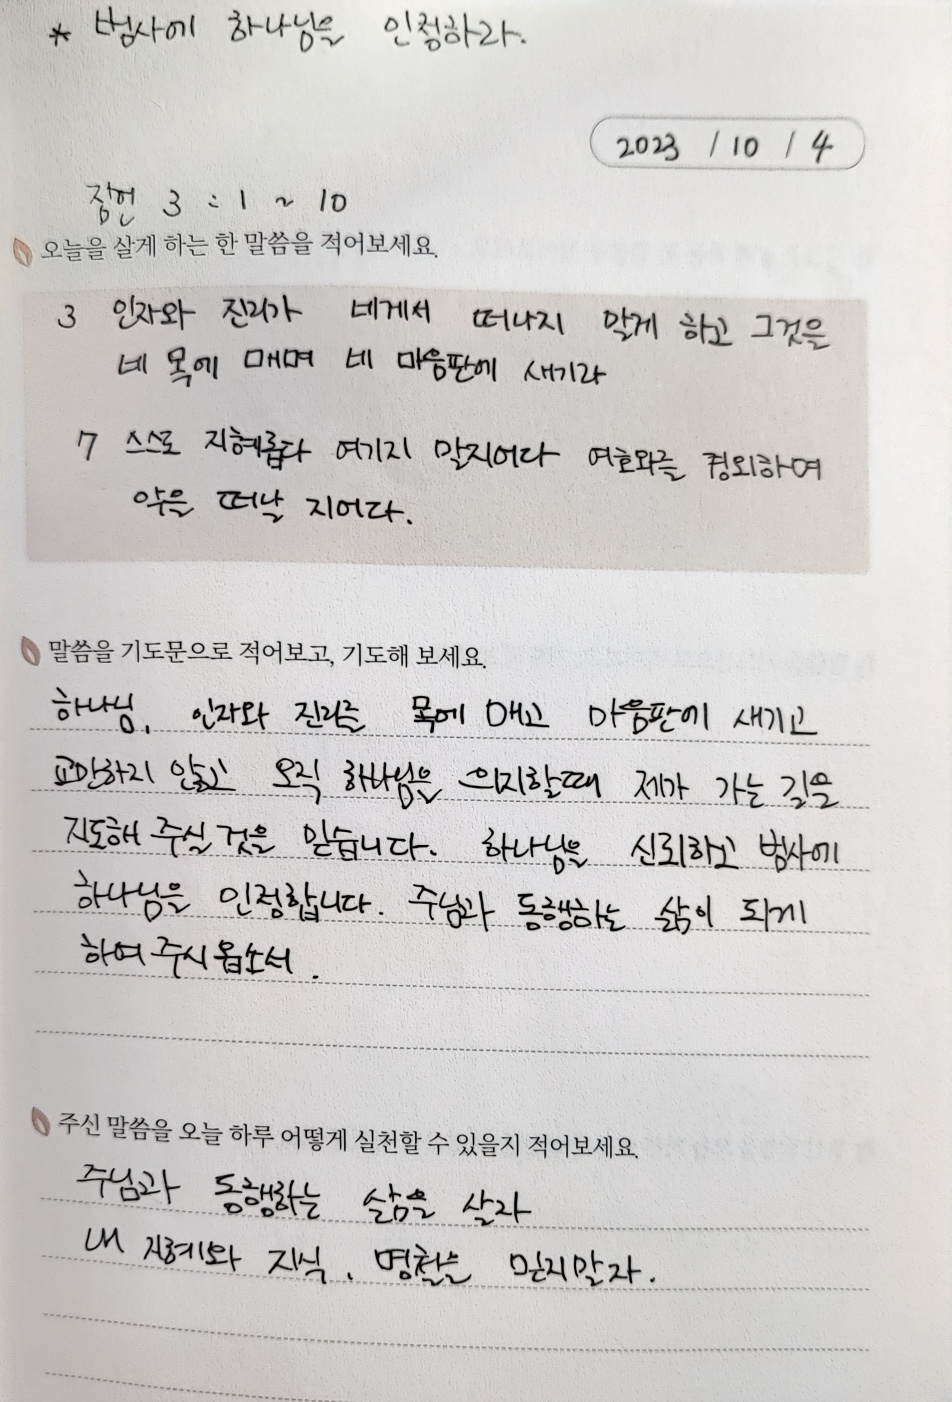 * 범사에 하나님을 인정하라.
2023 / 10 / 4
잠언 3 : 1 ~ 10
오늘을 살게 하는 한 말씀을 적어보세요.
3 인자와 진리가 네게서 떠나지 말게 하고 그것을
네 목에 매며 네 마음판에 새기라
7 스스로 지혜롭다 여기지 말지어다 여호와를 경외하며
악을 떠날 지어다.
말씀을 기도문으로 적어보고, 기도해 보세요.
하나님, 인자와 진리를 목에 매고 마음판에 새기고
교만하지 않고 오직 하나님을 의지할때 제가 가는 길을
지도해 주실 것을 믿습니다. 하나님을 신뢰하고 범사에
하나님을 인정합니다. 주님과 동행하는 삶이 되게
하여 주시옵소서.
주신 말씀을 오늘 하루 어떻게 실천할 수 있을지 적어보세요.
주님과 동행하는 삶을 살자
내 지혜와 지식, 명철을 믿지말자.